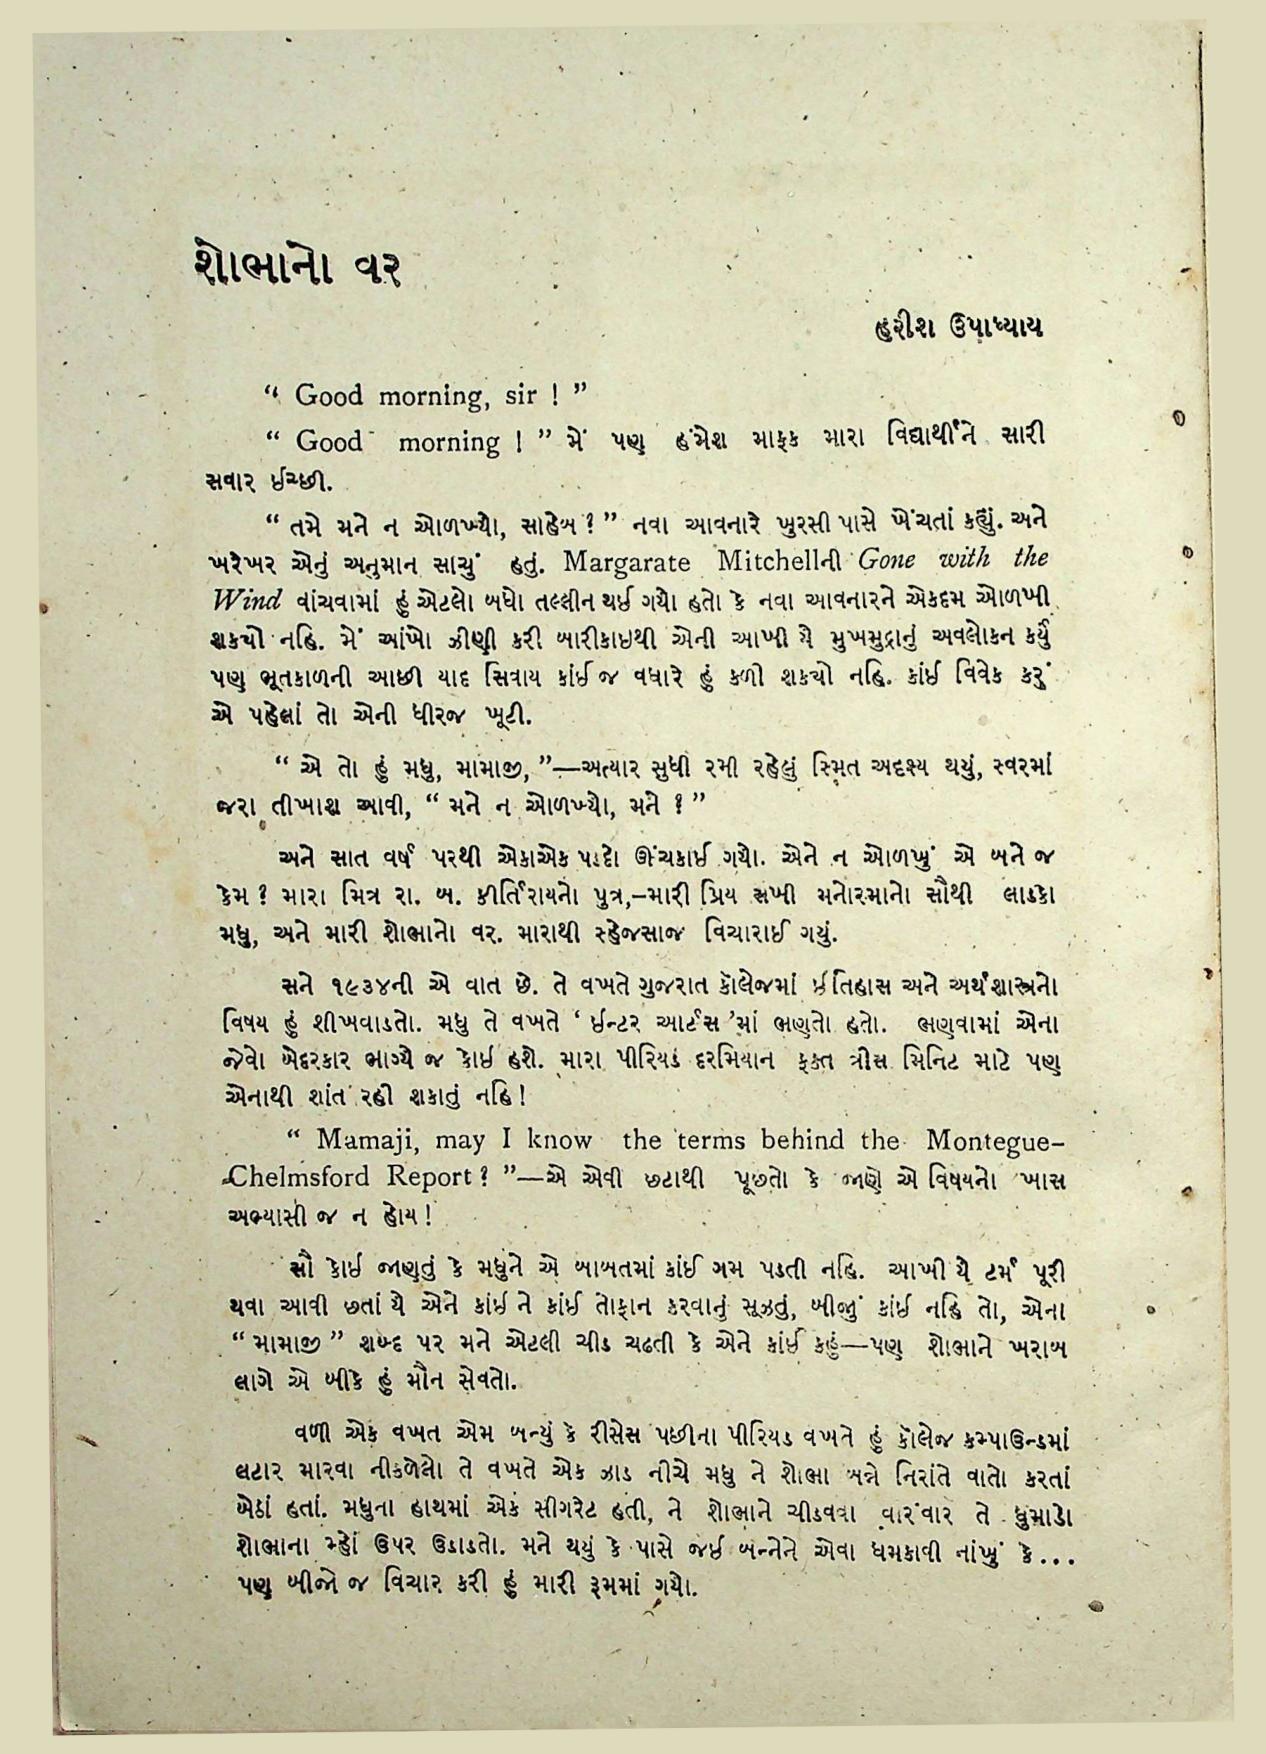 શોભાનો વર
હરીશ ઉપાધ્યાય
“ Good morning, sir ! ”
“ Good morning ! ” મેં પણ હંમેશ માફક મારા વિદ્યાર્થીને સારી
સવાર ઈચ્છી.
“ તમે મને ન ઓળખ્યો, સાહેબ ? ” નવા આવનારે ખુરસી પાસે ખેંચતાં કહ્યું. અને
ખરેખર એનું અનુમાન સાચું હતું. Margarate Mitchellની Gone with the
Wind વાંચવામાં હું એટલો બધો તલ્લીન થઈ ગયો હતો કે નવા આવનારને એકદમ ઓળખી
શકયો નહિ. મેં આંખો ઝીણી કરી બારીકાઇથી એની આખી યે મુખમુદ્રાનું અવલોકન કર્યું
પણ ભૂતકાળની આછી યાદ સિવાય કાંઈ જ વધારે હું કળી શકયો નહિ. કાંઈ વિવેક કરું
એ પહેલાં તો એની ધીરજ ખૂટી.
“ એ તો હું મધુ, મામાજી, ”—અત્યાર સુધી રમી રહેલું સ્મિત અદૃશ્ય થયું, સ્વરમાં
જરા તીખાશ આવી, “ મને ન ઓળખ્યો, મને ? ”
અને સાત વર્ષ પરથી એકાએક પડદો ઊંચકાઈ ગયો. એને ન ઓળખું એ બને જ
કેમ ? મારા મિત્ર રા. બ. કીર્તિરાયનો પુત્ર,–મારી પ્રિય સખી મનોરમાનો સૌથી લાડકો
મધુ, અને મારી શોભાનો વર. મારાથી સ્હેજસાજ વિચારાઈ ગયું.
સને ૧૯૩૪ની એ વાત છે. તે વખતે ગુજરાત કૉલેજમાં ઈતિહાસ અને અર્થશાસ્ત્રનો
વિષય હું શીખવાડતો. મધુ તે વખતે ‘ ઇન્ટર આર્ટસ ’માં ભણતો હતો. ભણવામાં એના
જેવો બેદરકાર ભાગ્યે જ કોઇ હશે. મારા પીરિયડ દરમિયાન ફક્ત ત્રીસ મિનિટ માટે પણ
એનાથી શાંત રહી શકાતું નહિ !
“ Mamaji, may I know the terms behind the Montegue–
Chelmsford Report ? ”—એ એવી છટાથી પૂછતો કે જાણે એ વિષયનો ખાસ
અભ્યાસી જ ન હોય !
સૌ કોઇ જાણતું કે મધુને એ બાબતમાં કાંઈ ગમ પડતી નહિ. આખી યે ટર્મ પૂરી
થવા આવી છતાં યે એને કાંઇ ને કાંઈ તોફાન કરવાનું સૂઝતું, બીજું કાંઈ નહિ તો, એના
“ મામાજી ” શબ્દ પર મને એટલી ચીડ ચઢતી કે એને કાંઈ કહું—પણ શોભાને ખરાબ
લાગે એ બીકે હું મૌન સેવતો.
વળી એક વખત એમ બન્યું કે રીસેસ પછીના પીરિયડ વખતે હું કૉલેજ કમ્પાઉન્ડમાં
લટાર મારવા નીકળેલો તે વખતે એક ઝાડ નીચે મધુ ને શોભા બન્ને નિરાંતે વાતો કરતાં
બેઠાં હતાં. મધુના હાથમાં એક સીગરેટ હતી, ને શોભાને ચીડવવા વારંવાર તે ધુમાડો
શોભાના મ્હોં ઉપર ઉડાડતો. મને થયું કે પાસે જઈ બન્નેને એવા ધમકાવી નાંખું કે...
પણ બીજો જ વિચાર કરી હું મારી રૂમમાં ગયો.